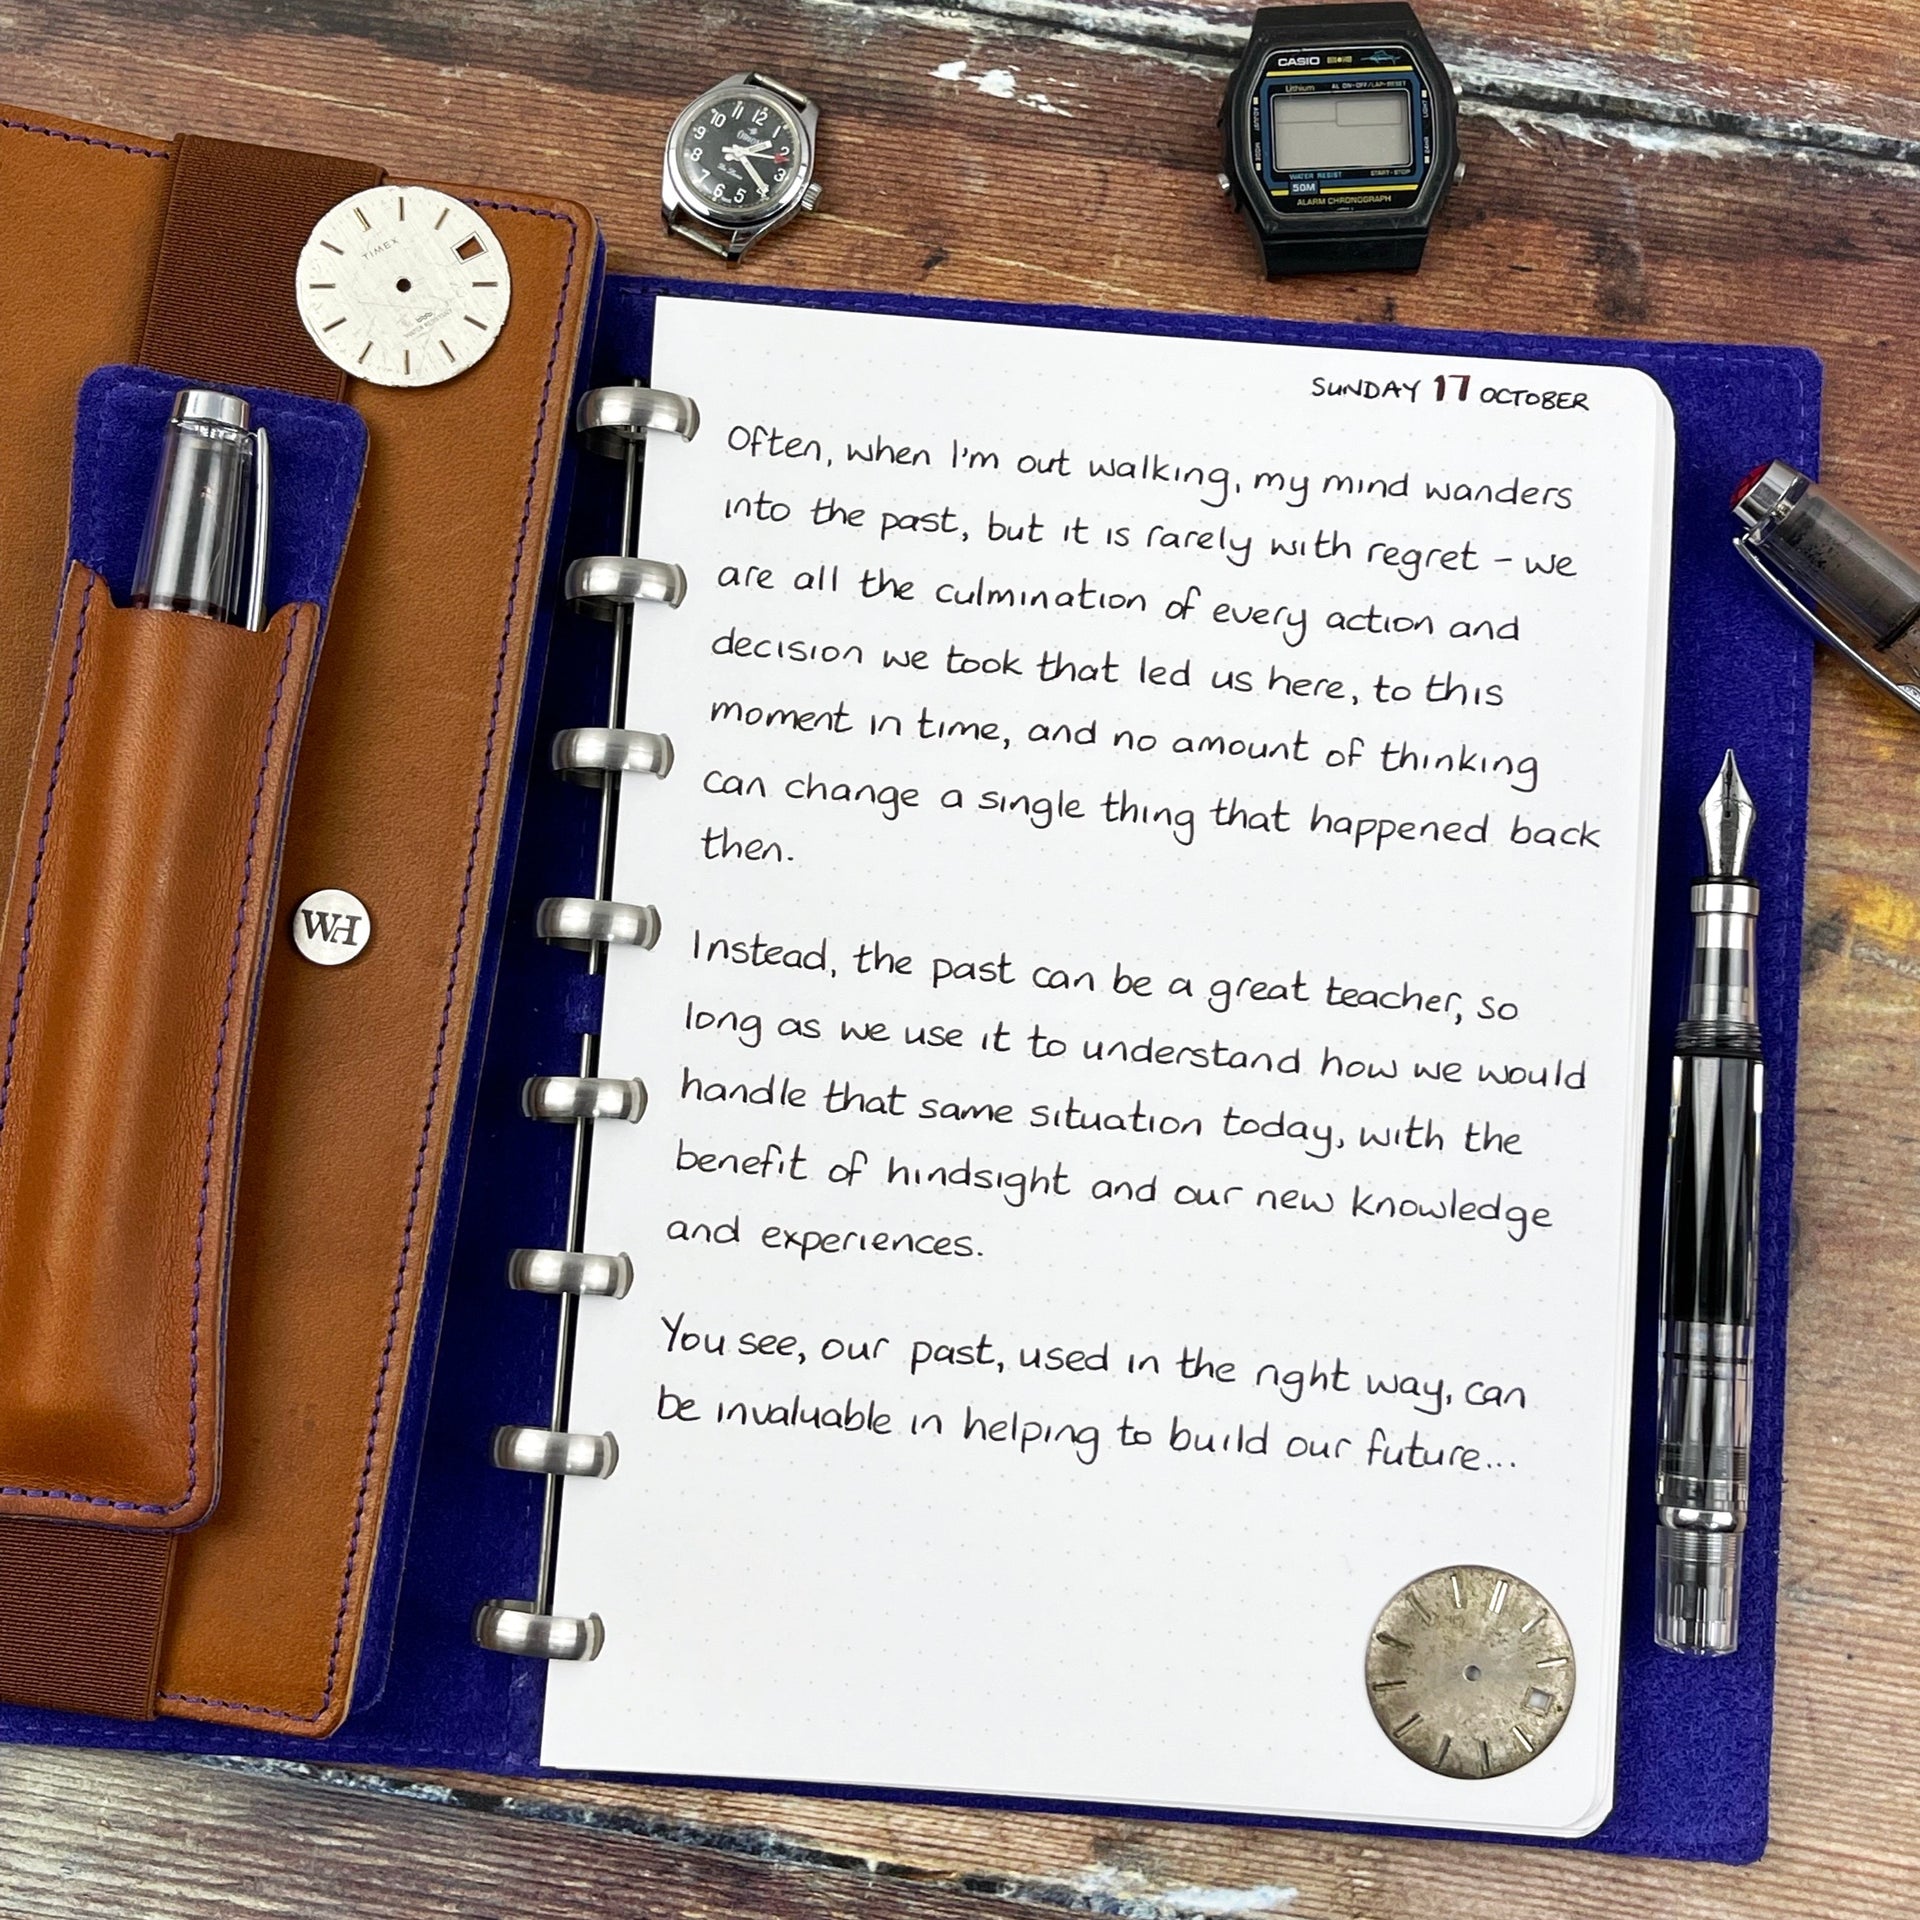 CASIO
Lithium AL ON-OFF/LAP-RESET
ADJUST
MODE
WATER RESIST START-STOP
50M
ALARM CHRONOGRAPH
10 11 12 1
9 2
8 3
7 6 5
TIMEX
WATER RESISTANT
WH
SUNDAY 17 OCTOBER
Often, when I'm out walking, my mind wanders
into the past, but it is rarely with regret – we
are all the culmination of every action and
decision we took that led us here, to this
moment in time, and no amount of thinking
can change a single thing that happened back
then.
Instead, the past can be a great teacher, so
long as we use it to understand how we would
handle that same situation today, with the
benefit of hindsight and our new knowledge
and experiences.
You see, our past, used in the right way, can
be invaluable in helping to build our future...